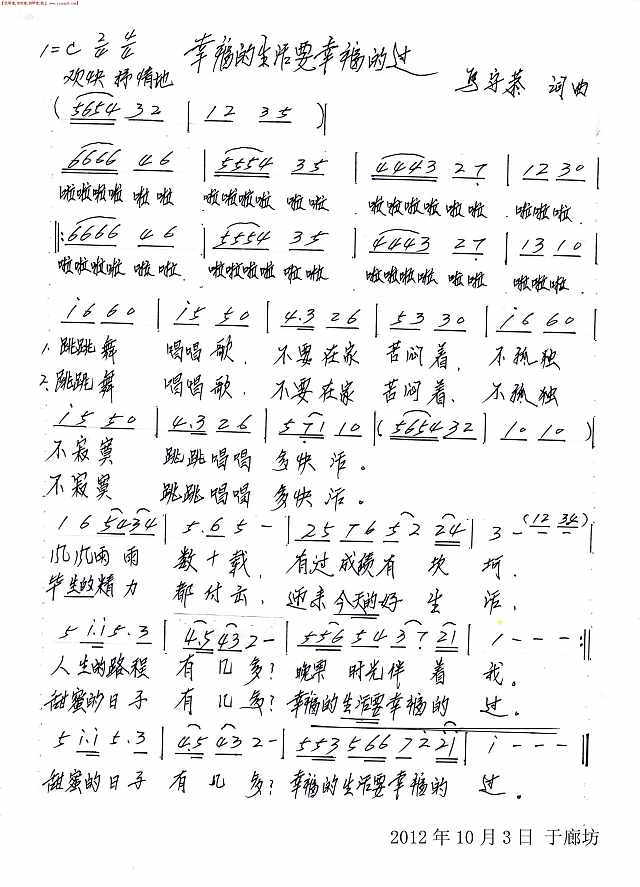 1=C 2/4 4/4 幸福的生活要幸福的过
欢快 抒情地 词曲
( 5654 32 | 12 35 )|
6666 46 | 5554 35 | 4443 27 | 12 30 |
啦啦啦啦 啦啦 啦啦啦啦 啦啦 啦啦啦啦啦啦 啦啦啦
||: 6666 46 | 5554 35 | 4443 27 | 13 10 |
啦啦啦啦 啦啦 啦啦啦啦 啦啦 啦啦啦啦 啦啦 啦啦啦
i6 60 | i5 50 | 4.3 26 | 53 30 | i6 60 |
1. 跳跳舞 唱唱歌, 不要在家 苦闷着, 不孤独
2. 跳跳舞 唱唱歌, 不要在家 苦闷着, 不孤独
i5 50 | 4.3 26 | 571 10 |( 5654 32 | 10 10 )|
不寂寞 跳跳唱唱 多快活。
不寂寞 跳跳唱唱 多快活。
16 5434 | 5.65 - | 25 76 52 24 | 3 - (12 34) |
风风雨雨 数十载, 有过成绩有 坎 坷,
毕生的精力 都付出, 迎来今天的好 生 活,
5 i.i 5.3 | 4.5 43 2 - | 556 54 37 21 | 1 - - - :||
人生的路程 有几多? 晚果 时光伴 着 我。
甜蜜的日子 有几多? 幸福的生活要幸福的 过。
5 i.i 5.3 | 4.5 43 2 - | 553 566 72 2i | i - - - ||
甜蜜的日子 有几多? 幸福的生活要幸福的 过。
2012 年 10 月 3 日 于廊坊